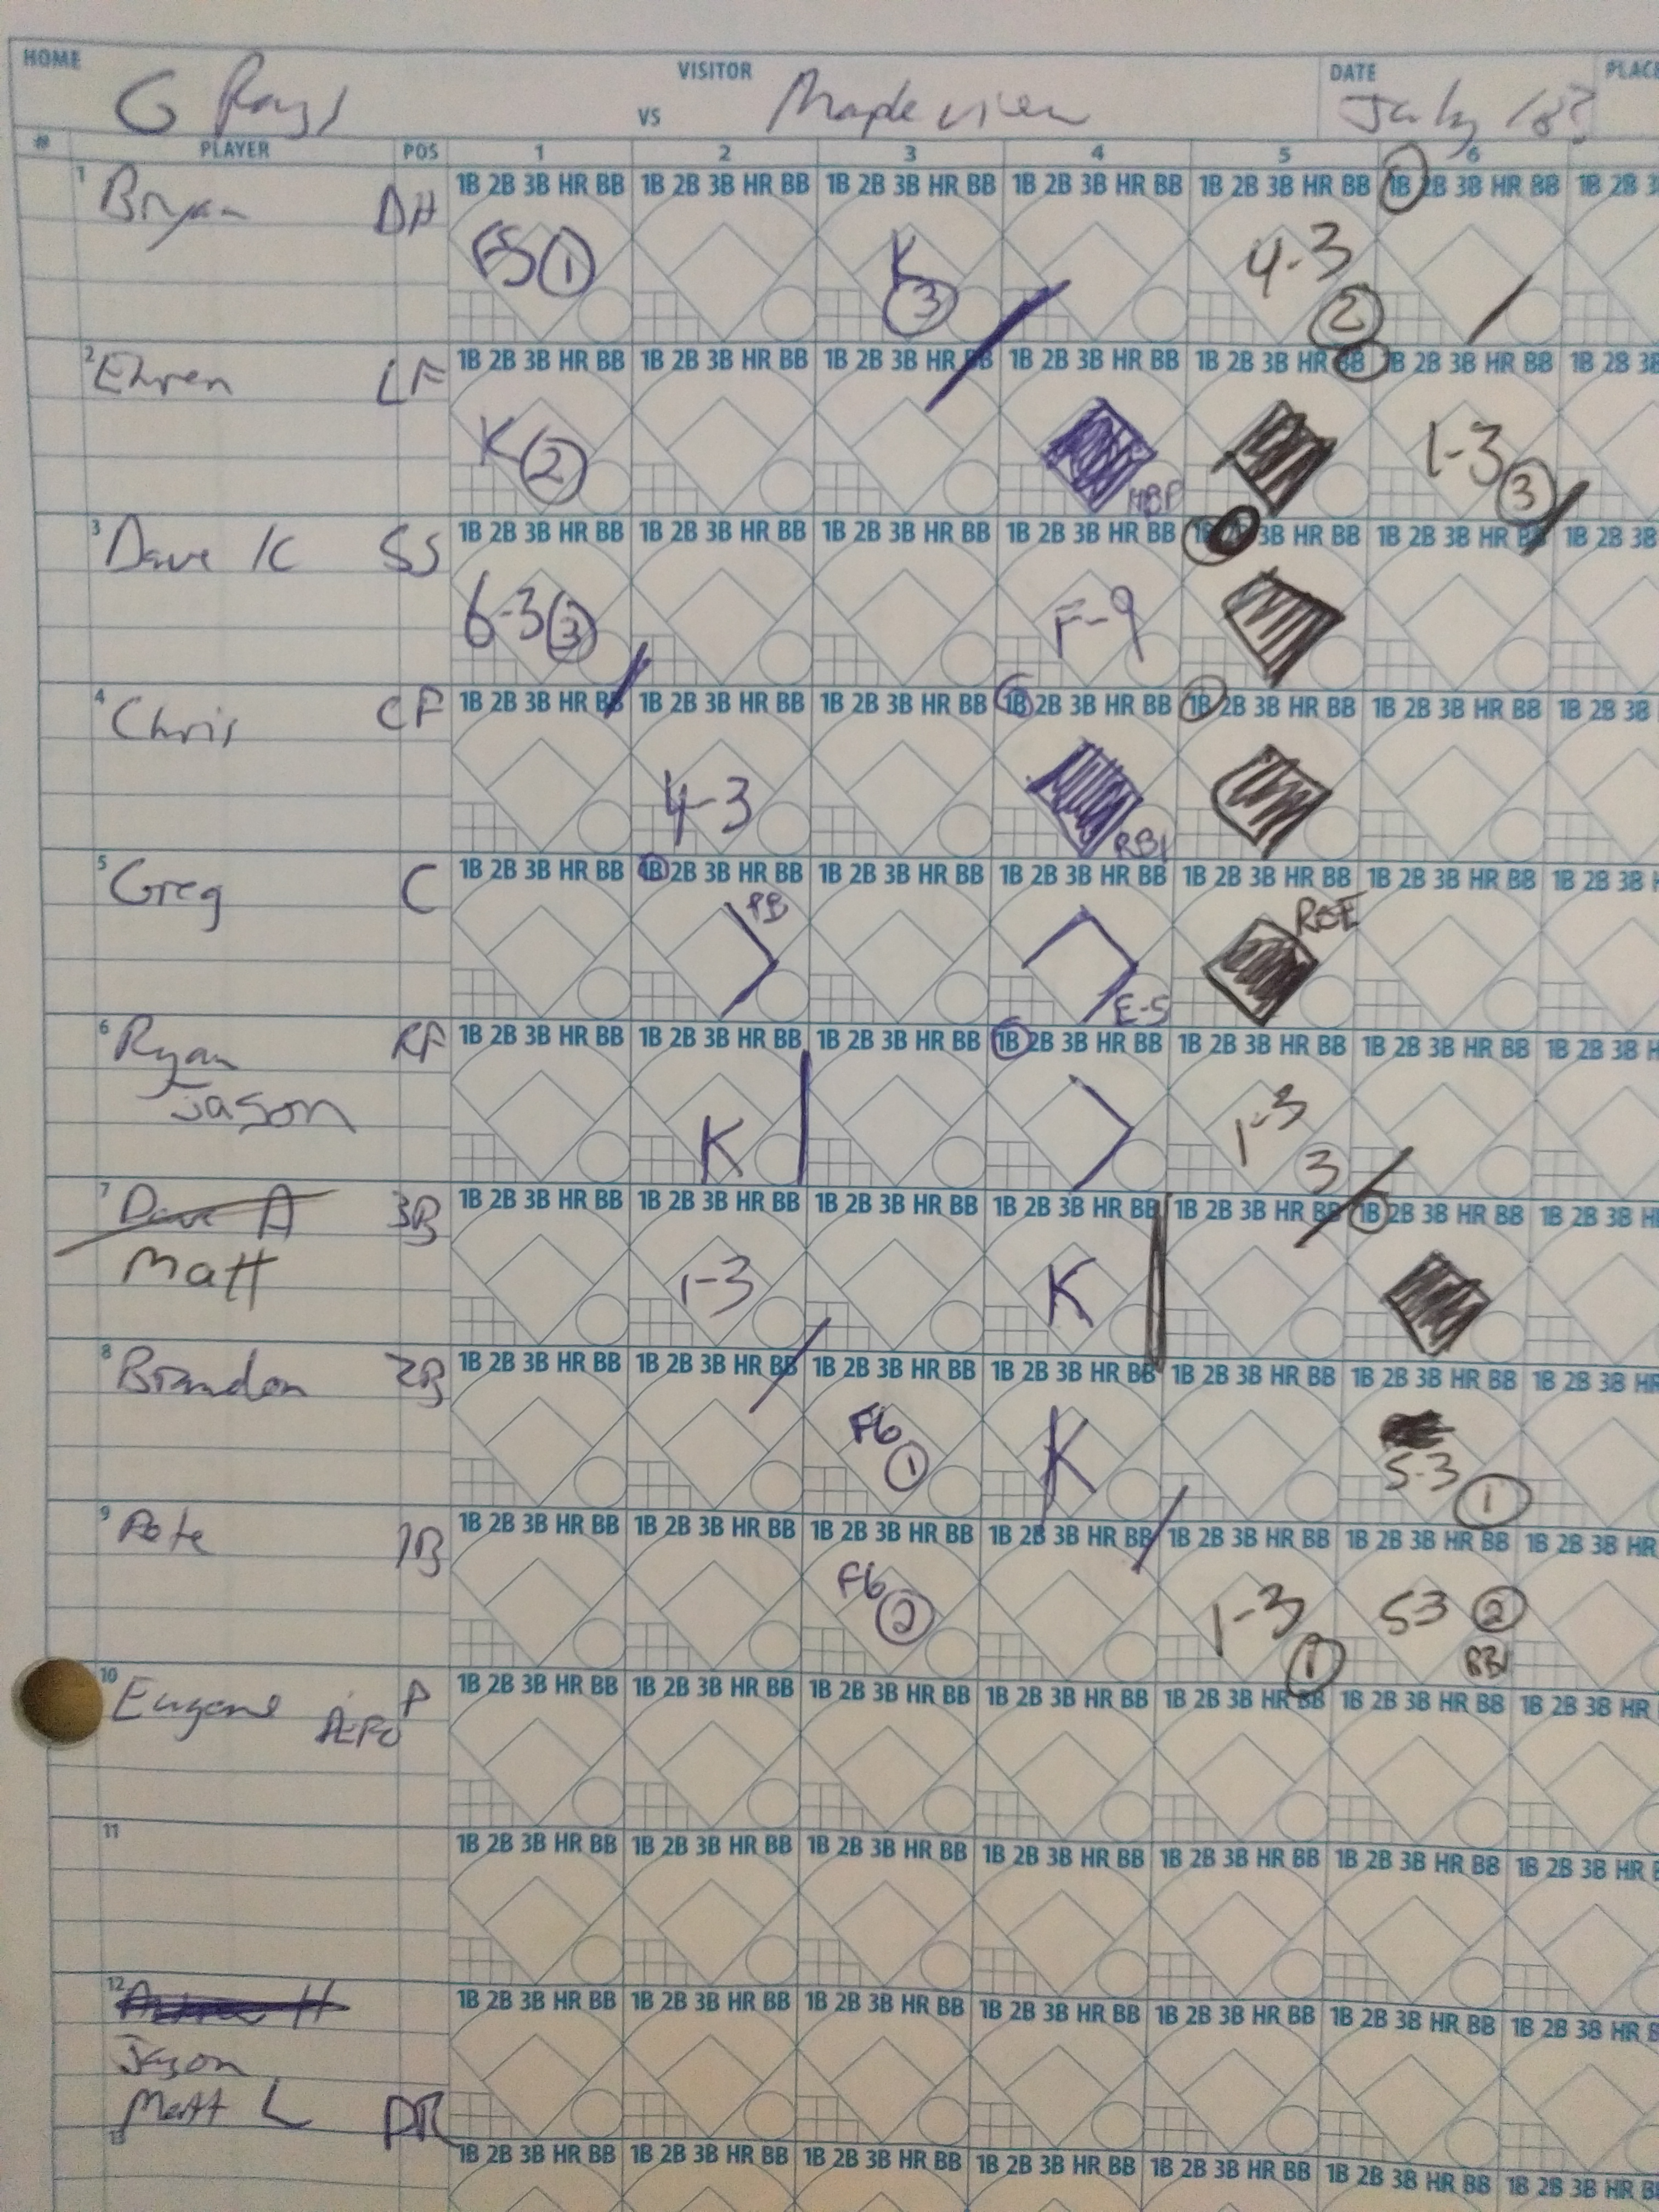 HOME VISITOR DATE PLACE
G Rays VS Mapleview July 18?
# PLAYER POS 1 2 3 4 5 6
1 Bryan DH
1B 2B 3B HR BB 1B 2B 3B HR BB 1B 2B 3B HR BB 1B 2B 3B HR BB 1B 2B 3B HR BB 1B 2B 3B HR BB 1B 2B 3
F5 1 K 3 4-3 2
2 Ehren LF
1B 2B 3B HR BB 1B 2B 3B HR BB 1B 2B 3B HR BB 1B 2B 3B HR BB 1B 2B 3B HR BB 1B 2B 3B HR BB 1B 2B 3B
K 2 HBP 1-3 3
3 Dave K SS
1B 2B 3B HR BB 1B 2B 3B HR BB 1B 2B 3B HR BB 1B 2B 3B HR BB 1B 3B HR BB 1B 2B 3B HR BB 1B 2B 3B
6-3 3 F-9
4 Chris CF
1B 2B 3B HR BB 1B 2B 3B HR BB 1B 2B 3B HR BB 1B 2B 3B HR BB 1B 2B 3B HR BB 1B 2B 3B HR BB 1B 2B 3B
4-3 RBI
5 Greg C
1B 2B 3B HR BB 1B 2B 3B HR BB 1B 2B 3B HR BB 1B 2B 3B HR BB 1B 2B 3B HR BB 1B 2B 3B HR BB 1B 2B 3B H
PB E-5 ROE
6 Ryan RF
1B 2B 3B HR BB 1B 2B 3B HR BB 1B 2B 3B HR BB 1B 2B 3B HR BB 1B 2B 3B HR BB 1B 2B 3B HR BB 1B 2B 3B H
Jason K 1-3 3
7 Dave A 3B
1B 2B 3B HR BB 1B 2B 3B HR BB 1B 2B 3B HR BB 1B 2B 3B HR BB 1B 2B 3B HR BB 1B 2B 3B HR BB 1B 2B 3B H
Matt 1-3 K
8 Brandon 2B
1B 2B 3B HR BB 1B 2B 3B HR BB 1B 2B 3B HR BB 1B 2B 3B HR BB 1B 2B 3B HR BB 1B 2B 3B HR BB 1B 2B 3B HR
F6 1 K 5-3 1
9 Pete 1B
1B 2B 3B HR BB 1B 2B 3B HR BB 1B 2B 3B HR BB 1B 2B 3B HR BB 1B 2B 3B HR BB 1B 2B 3B HR BB 1B 2B 3B HR
F6 2 1-3 1 53 2 RBI
10 Eugene P
1B 2B 3B HR BB 1B 2B 3B HR BB 1B 2B 3B HR BB 1B 2B 3B HR BB 1B 2B 3B HR BB 1B 2B 3B HR BB 1B 2B 3B HR
11
1B 2B 3B HR BB 1B 2B 3B HR BB 1B 2B 3B HR BB 1B 2B 3B HR BB 1B 2B 3B HR BB 1B 2B 3B HR BB 1B 2B 3B HR
12
1B 2B 3B HR BB 1B 2B 3B HR BB 1B 2B 3B HR BB 1B 2B 3B HR BB 1B 2B 3B HR BB 1B 2B 3B HR BB 1B 2B 3B HR
Jason
Matt L PR
13
1B 2B 3B HR BB 1B 2B 3B HR BB 1B 2B 3B HR BB 1B 2B 3B HR BB 1B 2B 3B HR BB 1B 2B 3B HR BB 1B 2B 3B HR